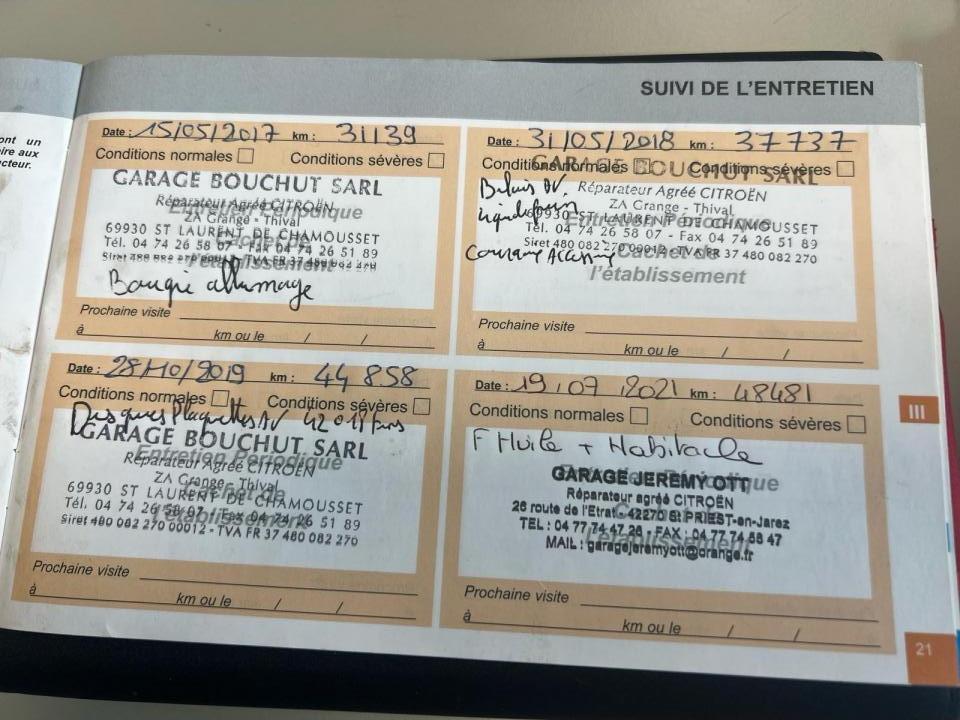 ont un
ire aux
cteur.
SUIVI DE L'ENTRETIEN
Date : 15/05/2017 km : 31139
Conditions normales Conditions sévères
GARAGE BOUCHUT SARL
Réparateur Agréé CITROËN
Entretien Périodique
ZA Grange - Thival
69930 ST LAURENT DE CHAMOUSSET
Cachet de
Tél. 04 74 26 58 07 - Fax 04 74 26 51 89
l'établissement
Siret 480 082 270 00012 - TVA FR 37 480 082 270
Bougie allumage
Prochaine visite
à km ou le / /
Date : 31/05/2018 km : 37737
Conditions normales Conditions sévères
GARAGE BOUCHUT SARL
Réparateur Agréé CITROËN
ZA Grange - Thival
Entretien Périodique
69930 ST LAURENT DE CHAMOUSSET
Tél. 04 74 26 58 07 - Fax 04 74 26 51 89
Siret 480 082 270 00012 - TVA FR 37 480 082 270
Cachet de
l'établissement
Prochaine visite
à km ou le / /
Date : 28/10/2019 km : 44 858
Conditions normales Conditions sévères
Disques Plaquettes AV
GARAGE BOUCHUT SARL
Entretien Périodique
Réparateur Agréé CITROËN
ZA Grange - Thival
Cachet de
69930 ST LAURENT DE CHAMOUSSET
Tél. 04 74 26 58 07 - Fax 04 74 26 51 89
l'établissement
Siret 480 082 270 00012 - TVA FR 37 480 082 270
Prochaine visite
à km ou le / /
Date : 19.07.2021 km : 48481
Conditions normales Conditions sévères
F Huile + Habitacle
Entretien Périodique
GARAGE JEREMY OTT
Réparateur agréé CITROËN
Cachet de
26 route de l'Etrat - 42270 St PRIEST-en-Jarez
TEL : 04 77 74 47 26 - FAX : 04 77 74 58 47
l'établissement
MAIL : garagejeremyott@orange.fr
Prochaine visite
à km ou le / /
III
21